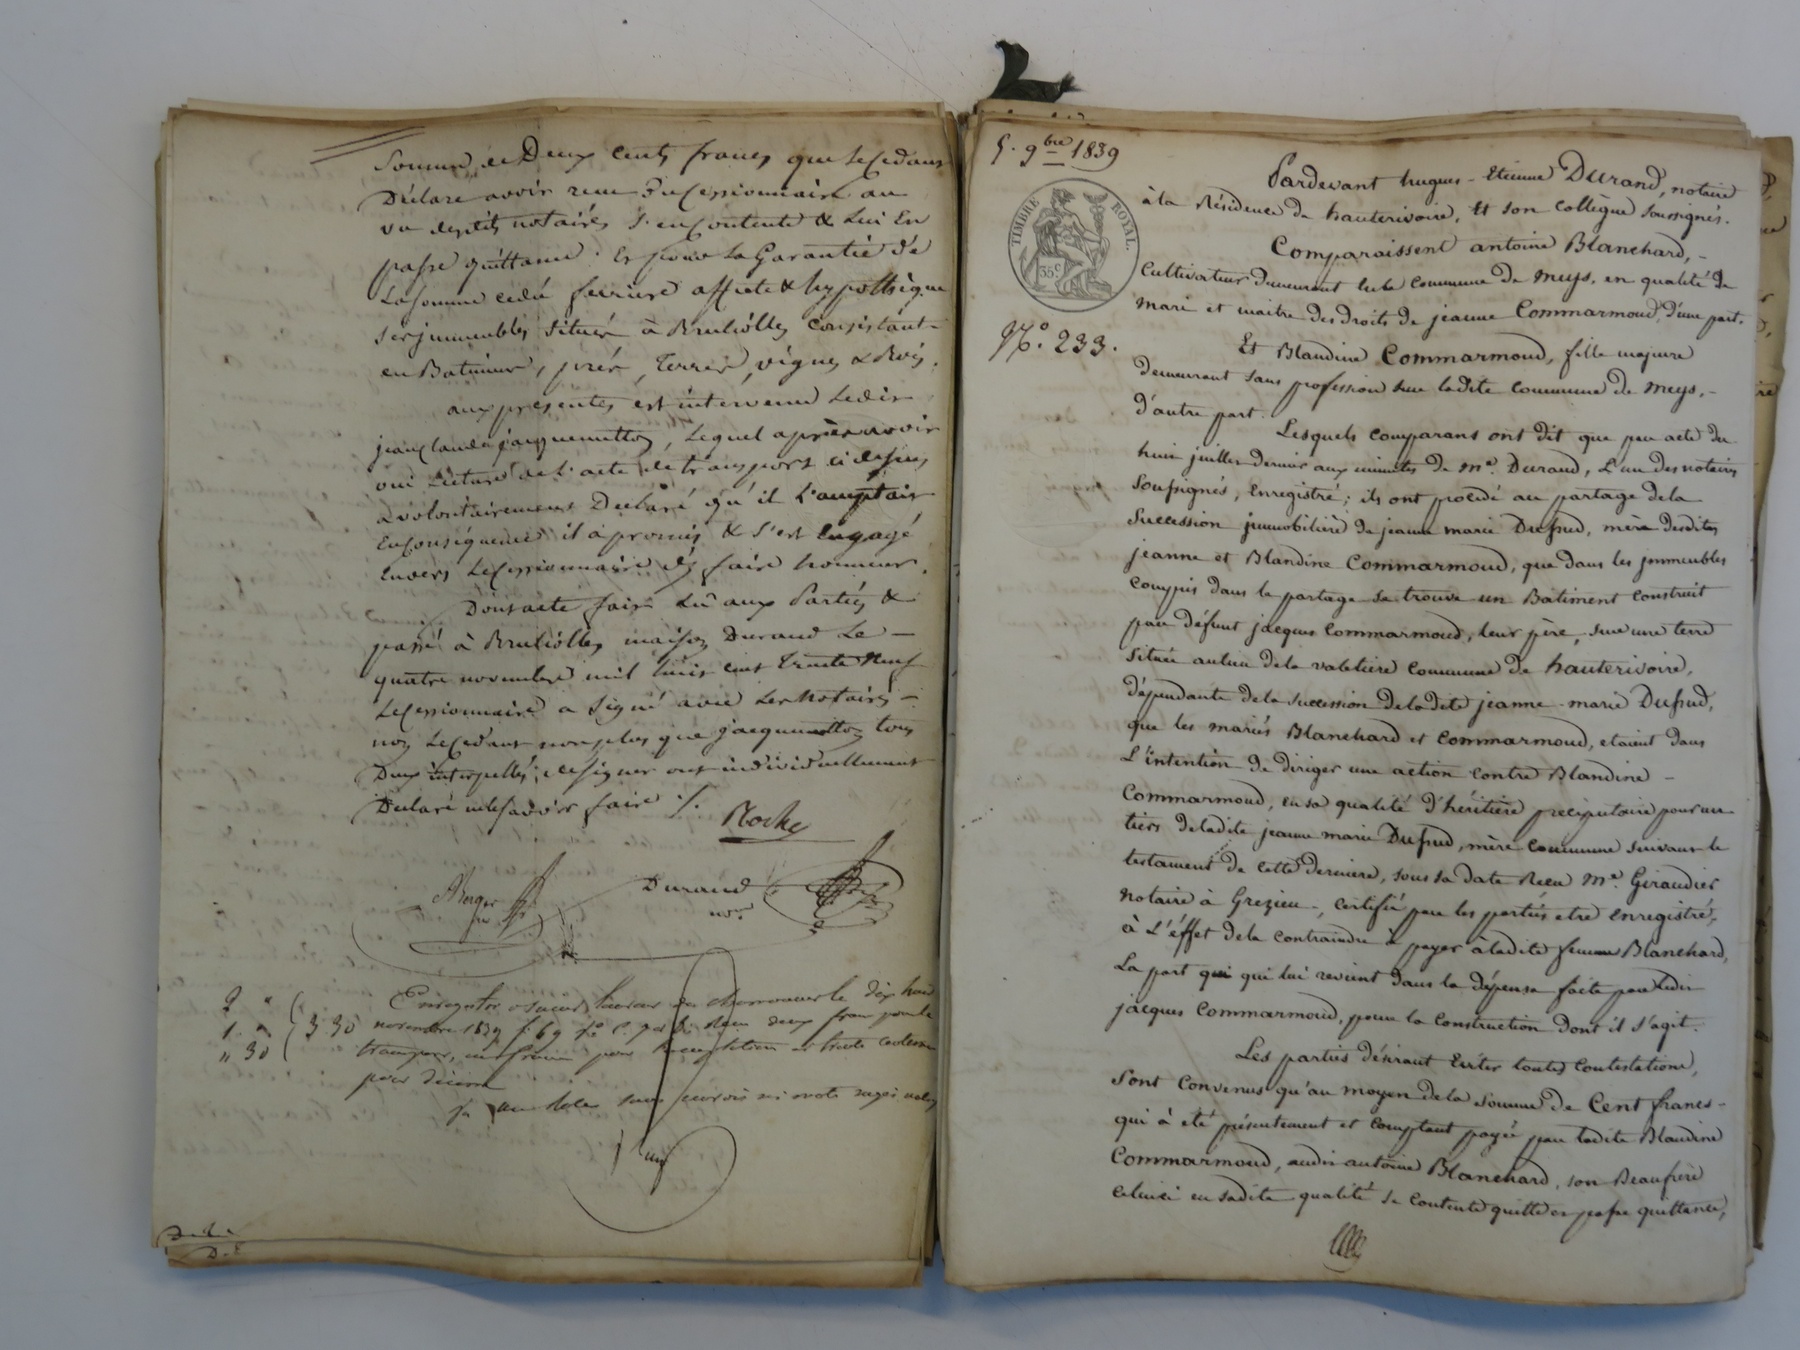 Somme de Deux cents francs que le Cedant
Déclare avoir reçue du Cessionnaire au
vu desdits notaires s'en contente & lui En
passe quittance. Et pour la Garantie de
La somme cédée affecte & hypothèque
ses immeubles situés à Brulliolles consistant
en Batiments, prés, Terres, vignes & Bois.
aux presentes est intervenu Ledit
jean Claude jacquemetton, Lequel après avoir
oui Lecture de l'acte de transport ci dessus
a volontairement Déclaré qu'il l'acceptait
En conséquence il a promis & s'est engagé
Envers Le Cessionnaire d'y faire honneur.
Dont acte fait Lû aux Parties &
passé à Brulliolles maison Durand Le
quatre novembre mil huit cent trente Neuf
Le Cessionnaire a signé avec Les Notaires
non Le Cedant non plus que jacquemetton tous
Deux interpellés de signer ont individuellement
Déclaré ne le savoir faire ./.
Roche
Berger
Durand
nre
2 "
1. "
" 30
3 30
Enregistré à St Laurent de Chamousset le dix huit
novembre 1839 f. 69 Reçu deux francs pour le
transport, un franc pour et trente centimes
pour décime
5. 9bre 1839
TIMBRE ROYAL.
35c
No. 233.
Pardevant hugues-Etienne Durand, notaire
à la Résidence de hauterivoire, Et son collègue soussignés.
Comparaissent antoine Blanchard,
Cultivateur demeurant sur la Commune de meys, en qualité de
mari et maitre des droits de jeanne Commarmond, d'une part.
Et Blandine Commarmond, fille majeure
demeurant sans profession sur ladite commune de meys,
d'autre part.
Lesquels comparans ont dit que par acte du
huit juillet dernier aux minutes de me. Durand, L'un des notaires
soussignés, Enregistré; ils ont procédé au partage de la
succession jmmobilière de jeanne marie Dufrud, mère desdites
jeanne et Blandine Commarmond, que dans les jmmeubles
compris dans le partage se trouve un Batiment construit
par défunt jacques Commarmond, leur père, sur une terre
située au lieu de la valetiere commune de hauterivoire,
dépendante de la succession de ladite jeanne-marie Dufrud,
que les mariés Blanchard et Commarmond, etaient dans
L'intention de diriger une action contre Blandine
Commarmond, en sa qualité d'héritière precipuitaire pour un
tiers de ladite jeanne marie Dufrud, mère commune suivant le
testament de cette dernière, sous sa date Recu Me. Giraudier
notaire à Grezieu, certifié par les parties etre enregistré,
à L'éffet de la contraindre à payer à ladite femme Blanchard,
La part qui qui lui revient dans la dépense faite par Ledit
jacques Commarmond, pour la construction dont il s'agit.
Les parties désirant Eviter toutes Contestations,
sont convenus qu'au moyen de la somme de Cent francs
qui à été présentement et comptant payée par ladite Blandine
Commarmond, audit antoine Blanchard, son Beaufrère
celui ci en sadite qualité se contente quitte et passe quittance,